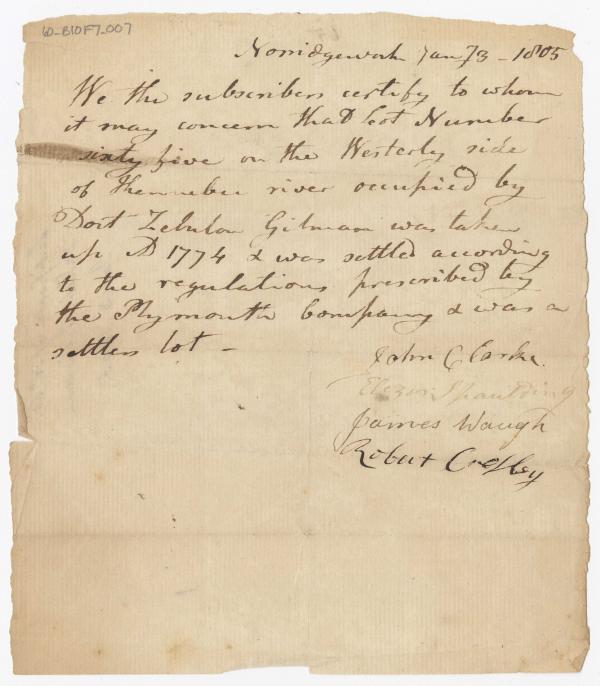 LO_B10F7_007
Norridgewock Jany 3 - 1805
We the subscribers certify to whom
it may concern that Lot Number
sixty five on the Westerly side
of Kennebec river occupied by
Doct Zebulon Gilman was taken
up AD 1774 & was settled according
to the regulations prescribed by
the Plymouth Company & was a
settlers lot -
John Clarke.
Spaulding
James Waugh
Robert Crosbey